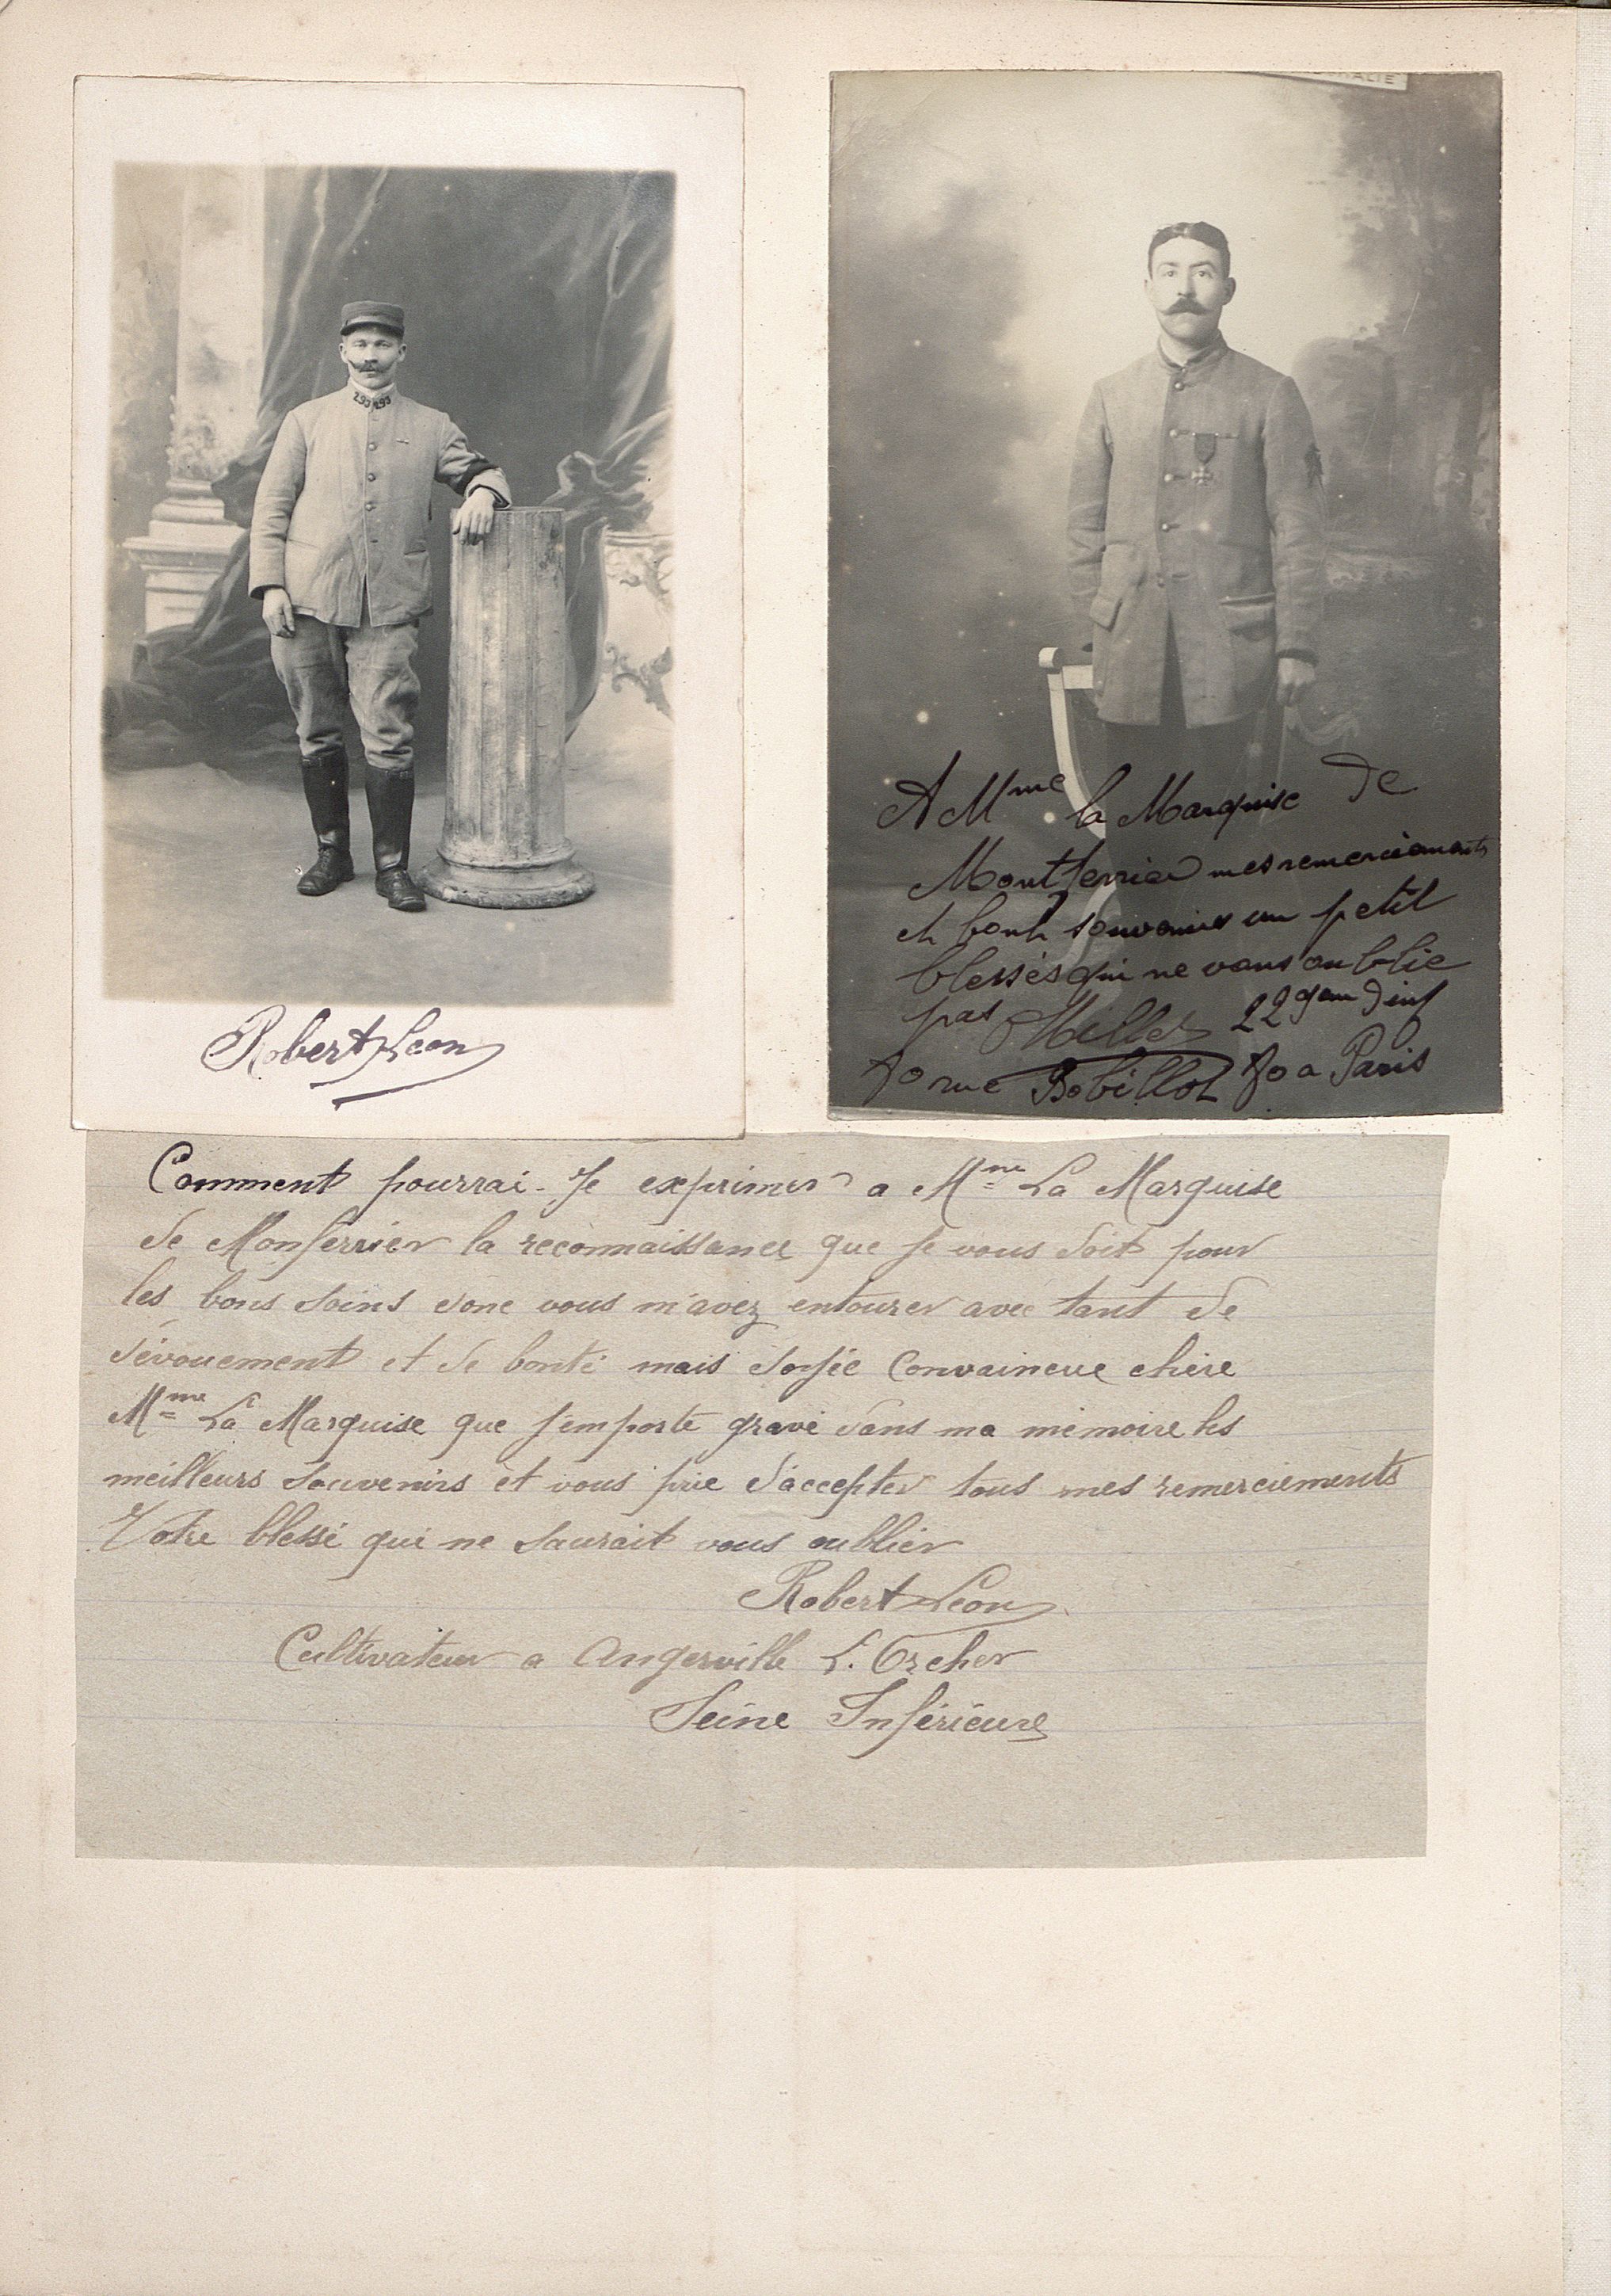 293 293
Robert Leon
A Mme la Marquise de
Montferrier mes remerciements
et bons souvenirs un petit
blessés qui ne vous oublie
pas Millet 22eme d'inf
70 rue Bobillot 70 a Paris
Comment pourrai-Je exprimer a Mme La Marquise
de Monferrier la reconnaissance que Je vous doit pour
les bons soins donc vous m'avez entourer avec tant de
dévouement et de bonté mais soyée Convaincue chère
Mme La Marquise que J'emporte gravé dans ma mémoire les
meilleurs souvenirs et vous prie d'accepter tous mes remerciements
Votre blessé qui ne saurait vous oublier
Robert Leon
Cultivateur a Angerville L'Orcher
Seine Inférieure